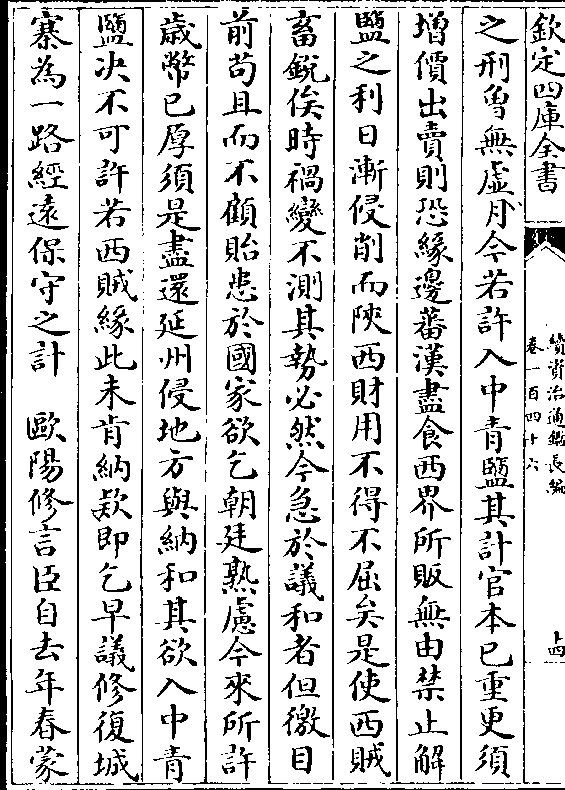 欽定四庫全書
續資治通鑑長編
卷一百四十六
十四
之刑曾無虛月今若許入中青鹽其計官本已重更須
增價出賣則恐緣邊蕃漢盡食西界所販無由禁止解
鹽之利日漸侵削而陜西財用不得不屈矣是使西賊
畜銳俟時禍變不測其勢必然今急於議和者但徼目
前苟且而不顧貽患於國家欲乞朝廷熟慮今來所許
歲幣已厚須是盡還延州侵地方與納和其欲入中青
鹽决不可許若西賊緣此未肯納欵即乞早議修復城
寨為一路經遠保守之計　歐陽修言臣自去年春蒙